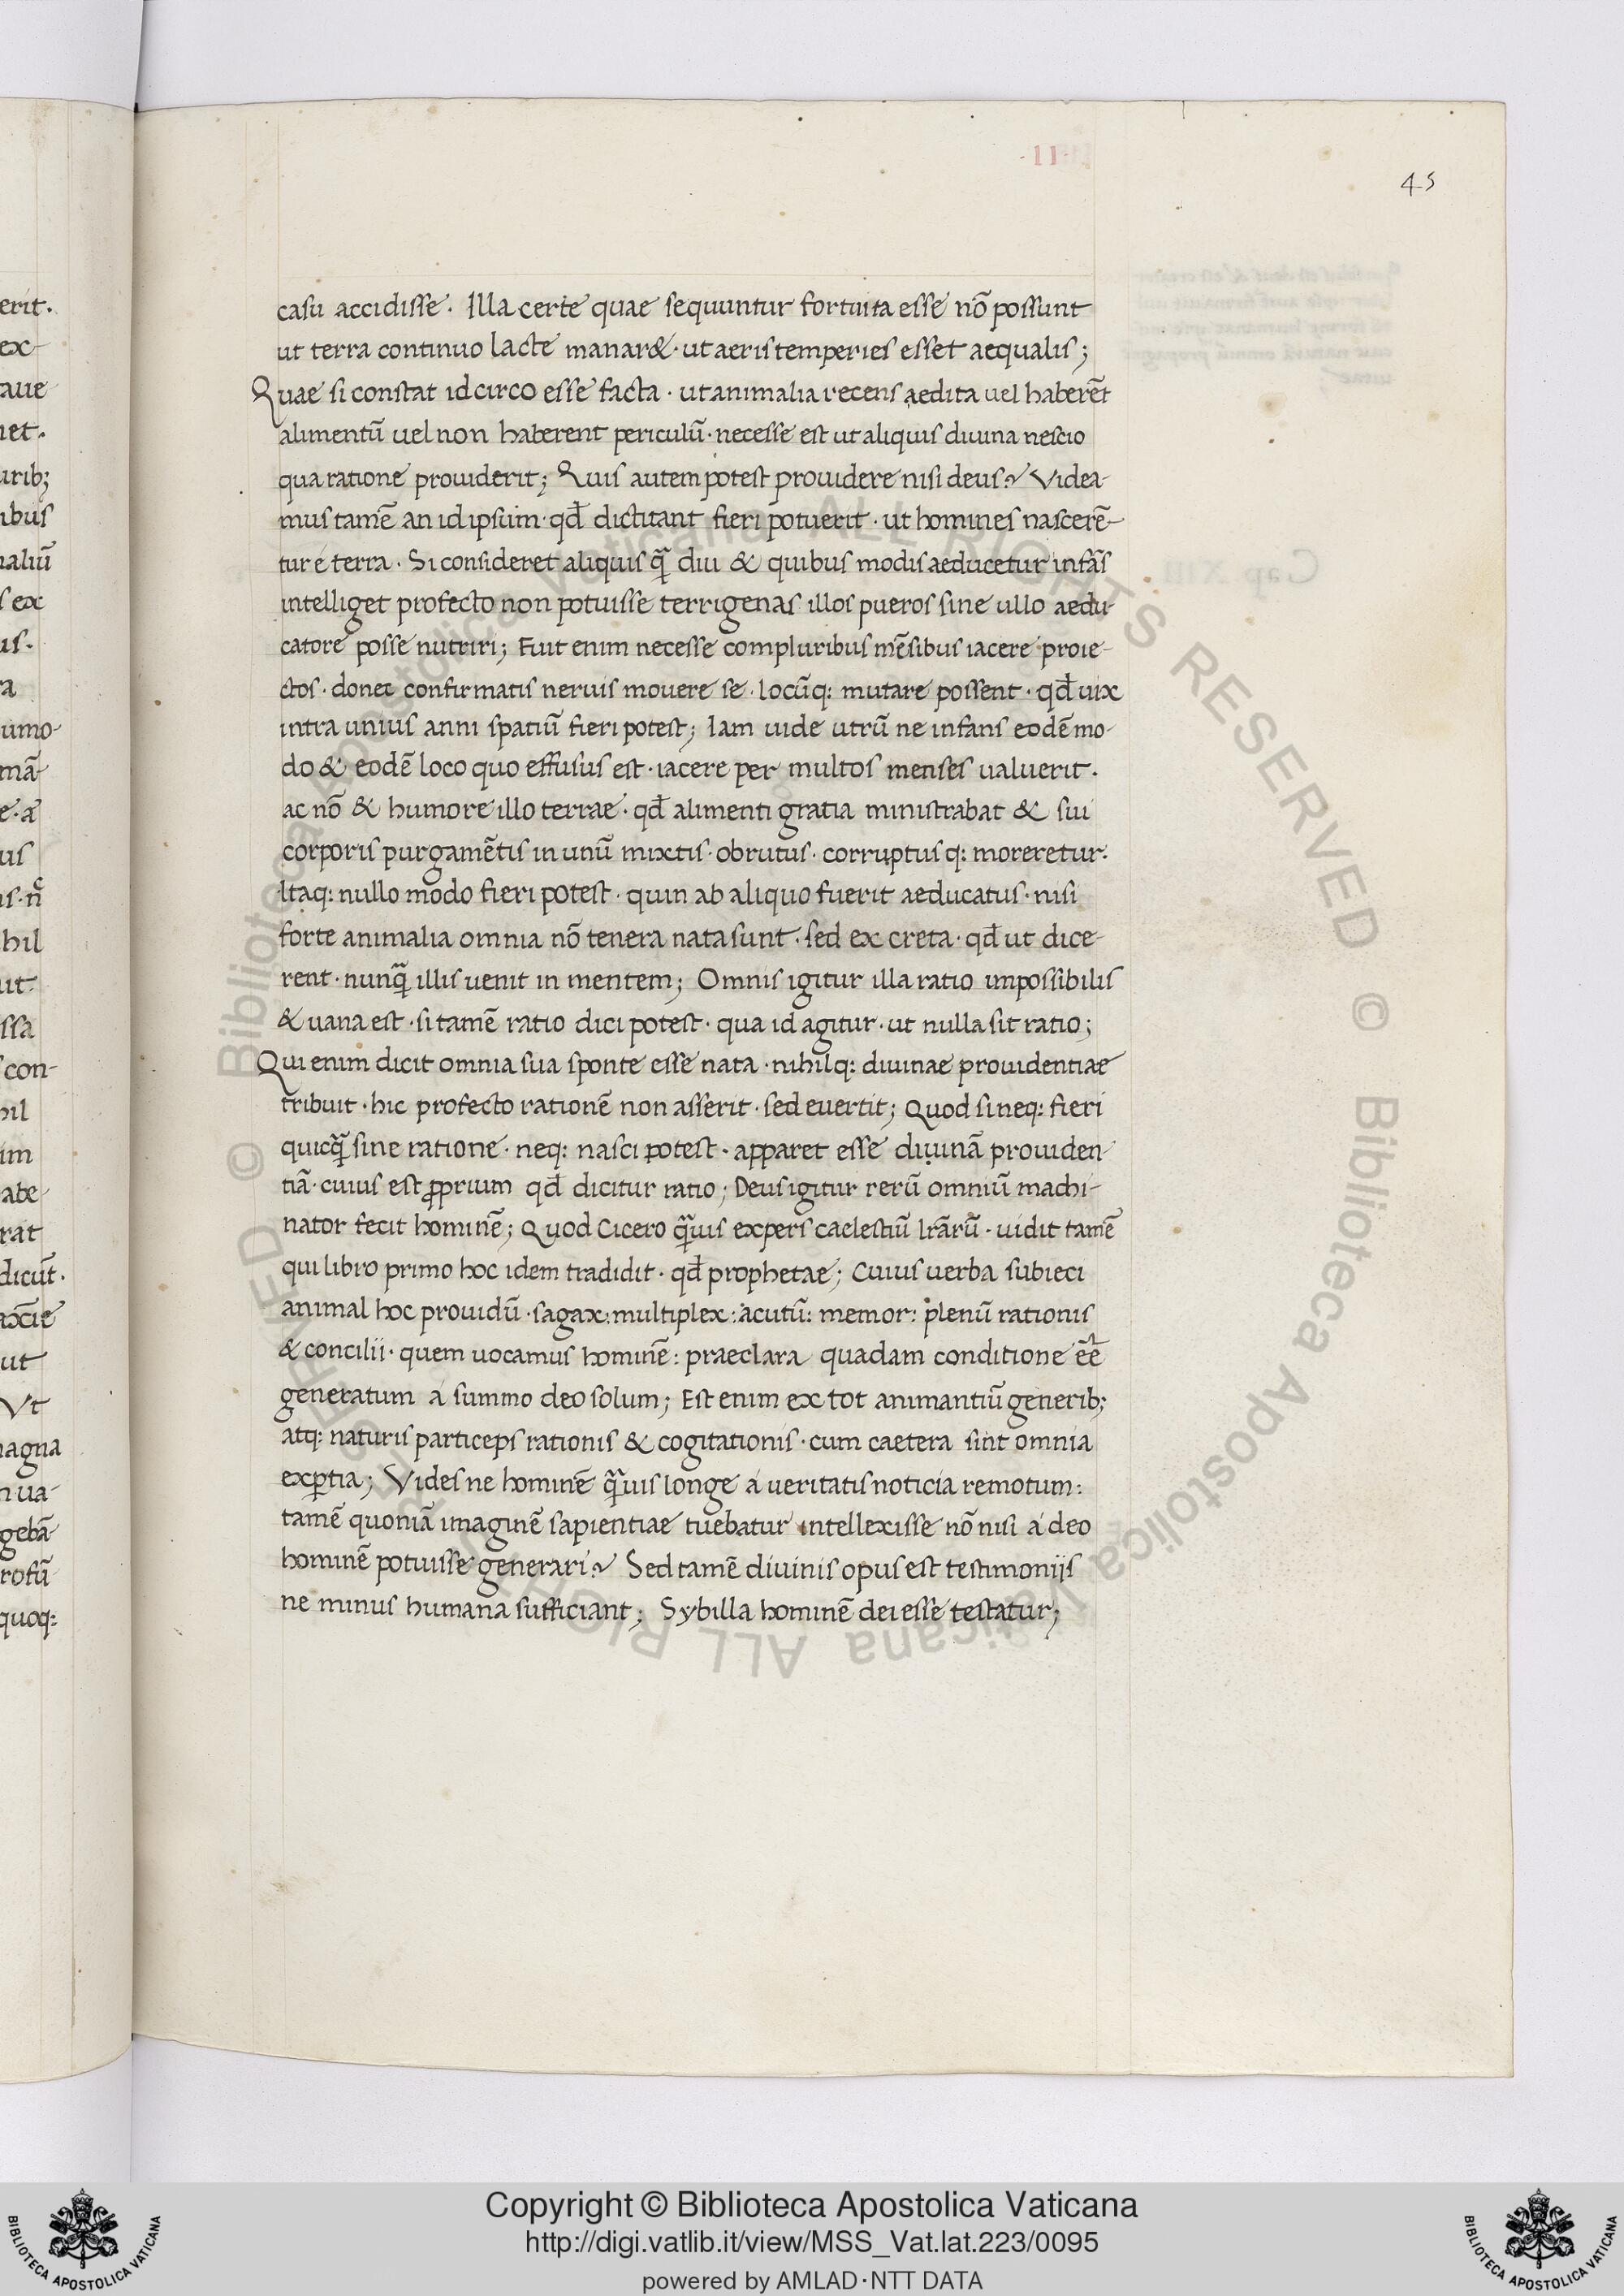 ·II·
45
casu accidisse· Illa certe quae sequuntur fortuita esse nō possunt
ut terra continuo lacte manar&· ut aeris temperies esset aequalis;
Quae si constat idcirco esse facta· ut animalia recens aedita uel haberēt
alimentū uel non haberent periculū· necesse est ut aliquis diuina nescio
qua ratione prouiderit; Quis autem potest prouidere nisi deus? Videa-
mus tamē an id ipsum· qd̄ dictitant fieri potuerit· ut homines nascerē-
tur e terra· Si consideret aliquis q̄ diu & quibus modis aeducetur infās
intelliget profecto non potuisse terrigenas illos pueros sine ullo aedu-
catore posse nutriri; Fuit enim necesse compluribus mēsibus iacere proie-
ctos· donec confirmatis neruis mouere se· locūq: mutare possent· qd̄ uix
intra unius anni spatiū fieri potest; Iam uide utrū ne infans eodē mo-
do & eodē loco quo effusus est· iacere per multos menses ualuerit·
ac nō & humore illo terrae· qd̄ alimenti gratia ministrabat & sui
corporis purgamētis in unū mixtis· obrutus· corruptusq: moreretur·
Itaq: nullo modo fieri potest· quin ab aliquo fuerit aeducatus· nisi
forte animalia omnia nō tenera nata sunt· sed ex creta· qd̄ ut dice-
rent· nunq̄ illis uenit in mentem; Omnis igitur illa ratio impossibilis
& uana est· si tamē ratio dici potest· qua id agitur· ut nulla sit ratio;
Qui enim dicit omnia sua sponte esse nata· nihilq: diuinae prouidentiae
tribuit· hic profecto rationē non asserit· sed euertit; Quod si neq: fieri
quicq̄ sine ratione· neq: nasci potest· apparet esse diuinā prouiden-
tiā· cuius est ꝓprium qd̄ dicitur ratio; Deus igitur rerū omniū machi-
nator fecit hominē; Quod Cicero q̄uis expers caelestiū lr̄arū· uidit tamē
qui libro primo hoc idem tradidit· qd̄ prophetae; Cuius uerba subieci
animal hoc prouidū· sagax: multiplex: acutū: memor: plenū rationis
& concilii· quem uocamus hominē: praeclara quadam conditione eē
generatum a summo deo solum; Est enim ex tot animantiū generib;
atq: naturis particeps rationis & cogitationis· cum caetera sint omnia
exꝑtia; Vides ne hominē q̄uis longe a veritatis noticia remotum:
tamē quoniā imaginē sapientiae tuebatur intellexisse nō nisi a deo
hominē potuisse generari? Sed tamē diuinis opus est testimoniis
ne minus humana sufficiant; Sybilla hominē dei esse testatur;
Copyright © Biblioteca Apostolica Vaticana
http://digi.vatlib.it/view/MSS_Vat.lat.223/0095
powered by AMLAD·NTT DATA